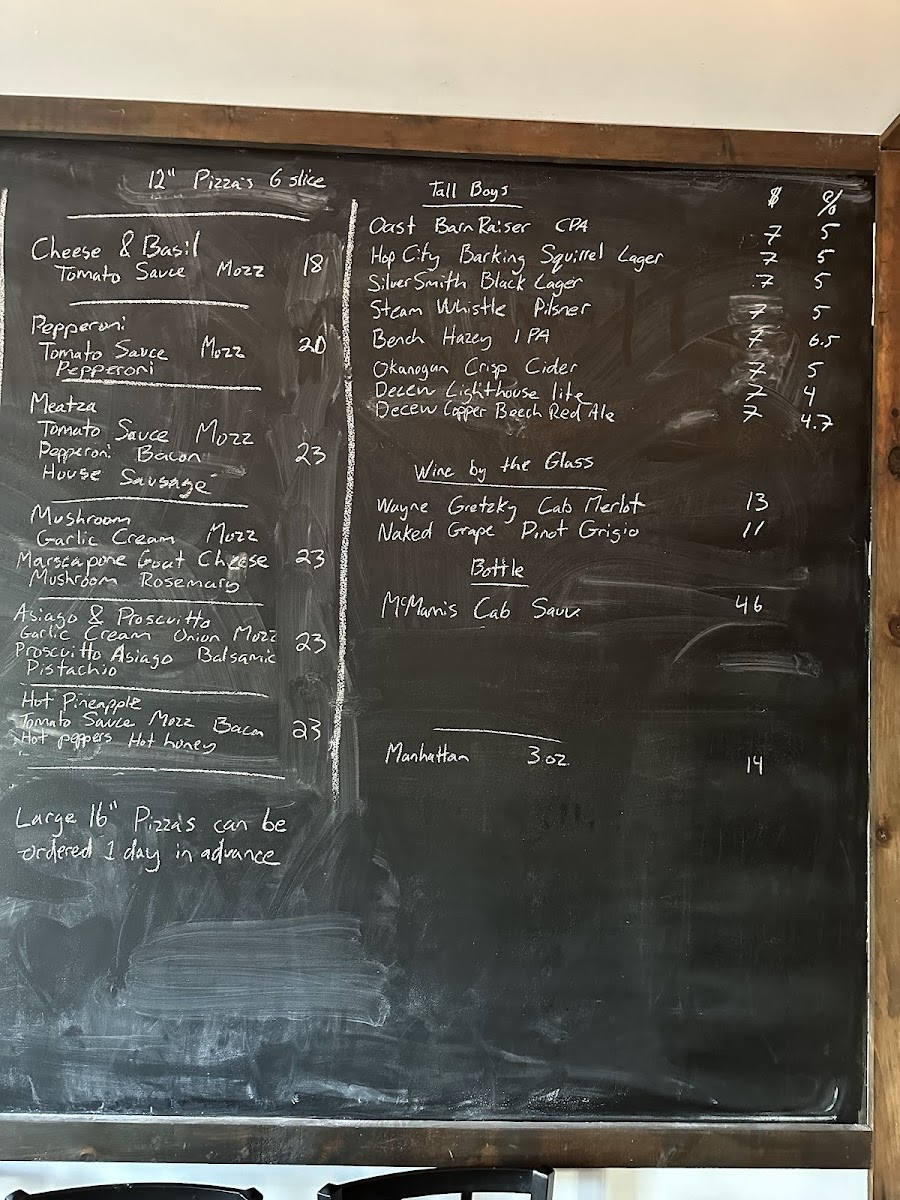 12" Pizza's 6 slice
Cheese & Basil
Tomato Sauce Mozz 18
Pepperoni
Tomato Sauce Mozz 20
Pepperoni
Meatza
Tomato Sauce Mozz
Pepperoni Bacon 23
House Sausage
Mushroom
Garlic Cream Mozz
Marscapone Goat Cheese 23
Mushroom Rosemary
Asiago & Proscuitto
Garlic Cream Onion Mozz 23
Proscuitto Asiago Balsamic
Pistachio
Hot Pineapple
Tomato Sauce Mozz Bacon 23
Hot peppers Hot honey
Large 16" Pizza's can be
ordered 1 day in advance
Tall Boys $ %
Oast Barn Raiser CPA 7 5
Hop City Barking Squirrel Lager 7 5
SilverSmith Black Lager 7 5
Steam Whistle Pilsner 7 5
Bench Hazey IPA 7 6.5
Okanogan Crisp Cider 7 5
Decew Lighthouse lite 7 4
Decew Copper Beech Red Ale 7 4.7
Wine by the Glass
Wayne Gretzky Cab Merlot 13
Naked Grape Pinot Grigio 11
Bottle
McMannis Cab Sauv 46
Manhattan 3 oz 14